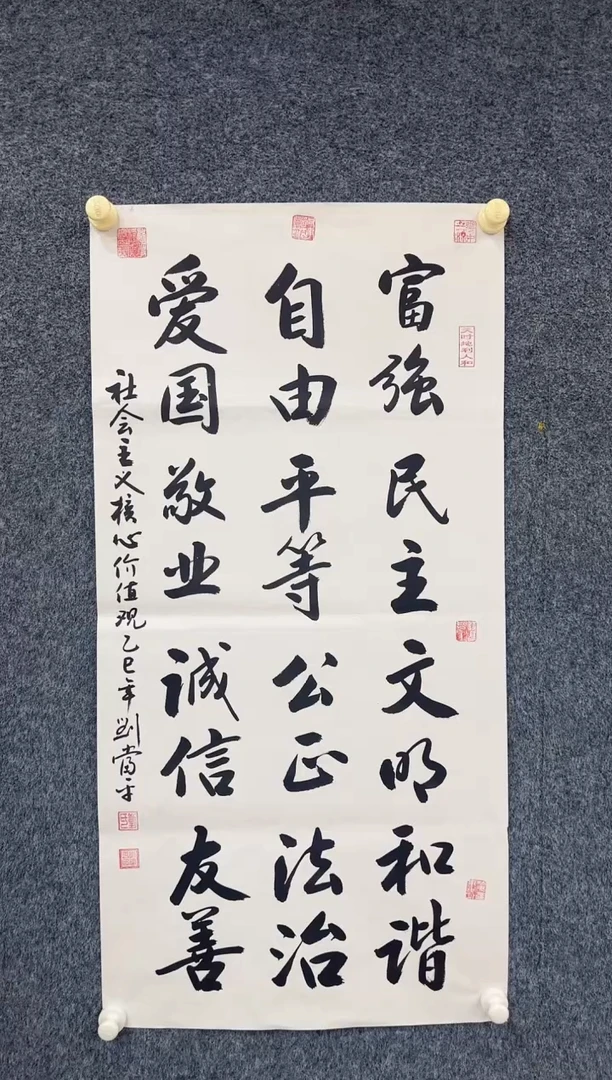 富强民主文明和谐
自由平等公正法治
爱国敬业诚信友善
社会主义核心价值观乙巳年刘当平
天时地利人和